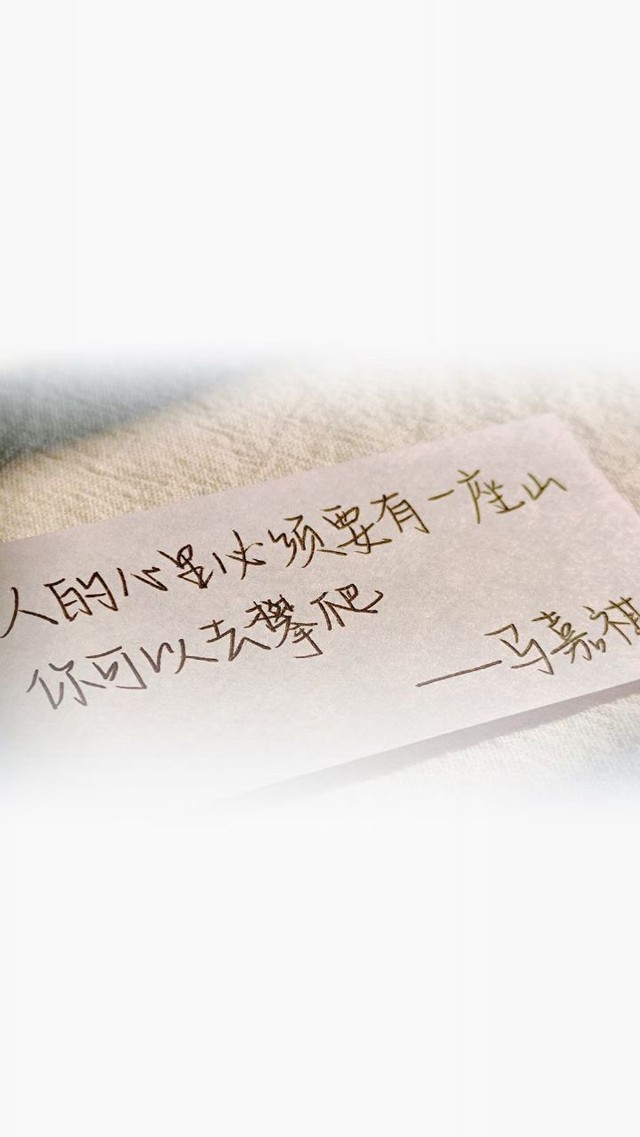 人的心里必须要有一座山
你可以去攀爬
——马嘉祺